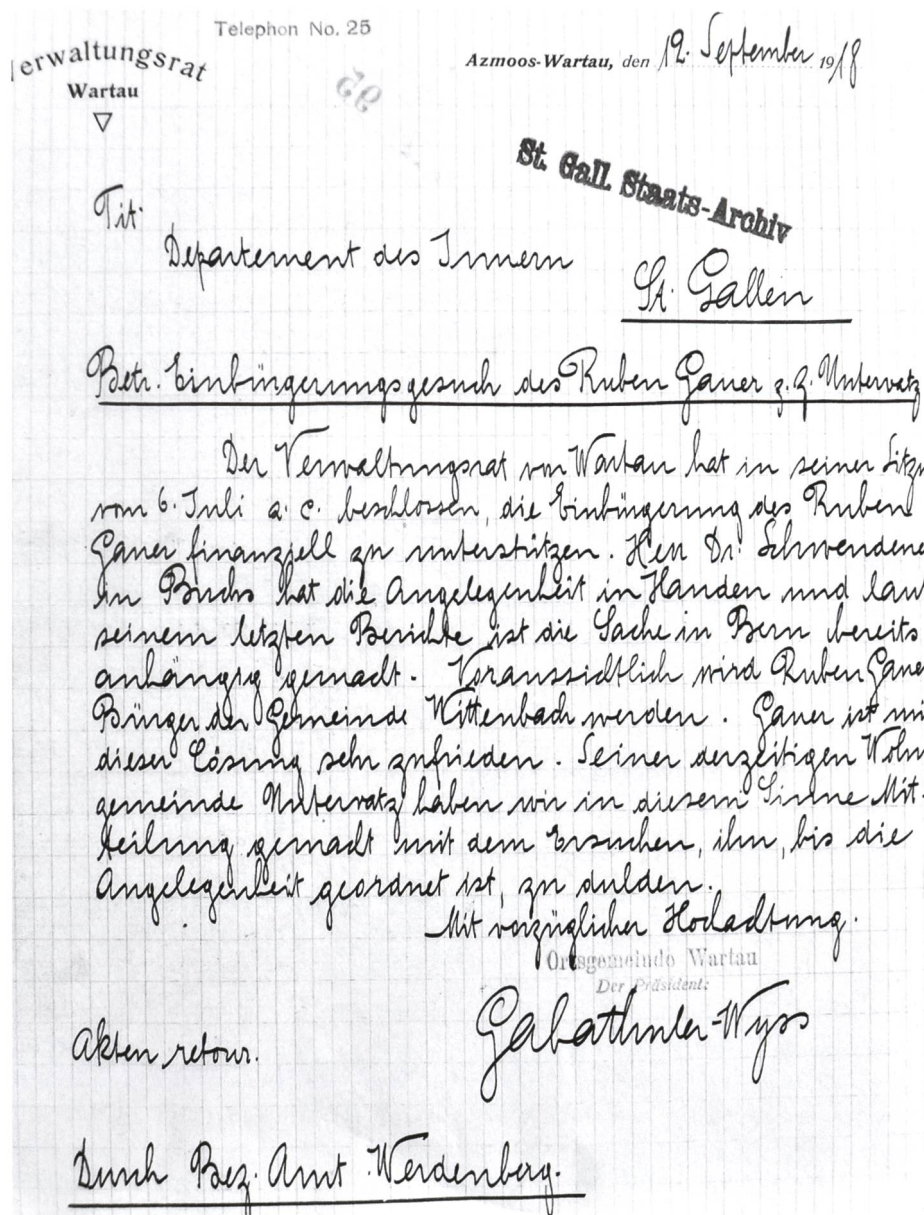 Telephon No. 25
erwaltungsrat
Wartau
Azmoos-Wartau, den 12. September 1918
95
St. Gall. Staats-Archiv
Tit.
Departement des Innern
St. Gallen
Betr. Einbürgerungsgesuch des Ruben Ganer z. Z. Untervatz
Der Verwaltungsrat von Wartau hat in seiner Sitzu
vom 6. Juli a. c. beschlossen, die Einbürgerung des Ruben
Ganer finanziell zu unterstützen. Herr Dr. Schwendene
in Buchs hat die Angelegenheit in Handen und laut
seinem letzten Berichte ist die Sache in Bern bereits
anhängig gemacht. Voraussichtlich wird Ruben Ganer
Bürger der Gemeinde Wittenbach werden. Ganer ist mi
dieser Lösung sehr zufrieden. Seiner derzeitigen Wohn
gemeinde Untervatz haben wir in diesem Sinne Mit-
teilung gemacht mit dem Ersuchen, ihn, bis die
Angelegenheit geordnet ist, zu dulden.
Mit vorzüglicher Hochachtung.
Ortsgemeinde Wartau
Der Präsident:
Gabathuler-Wyss
Akten retour.
Durch Bez. Amt Werdenberg.